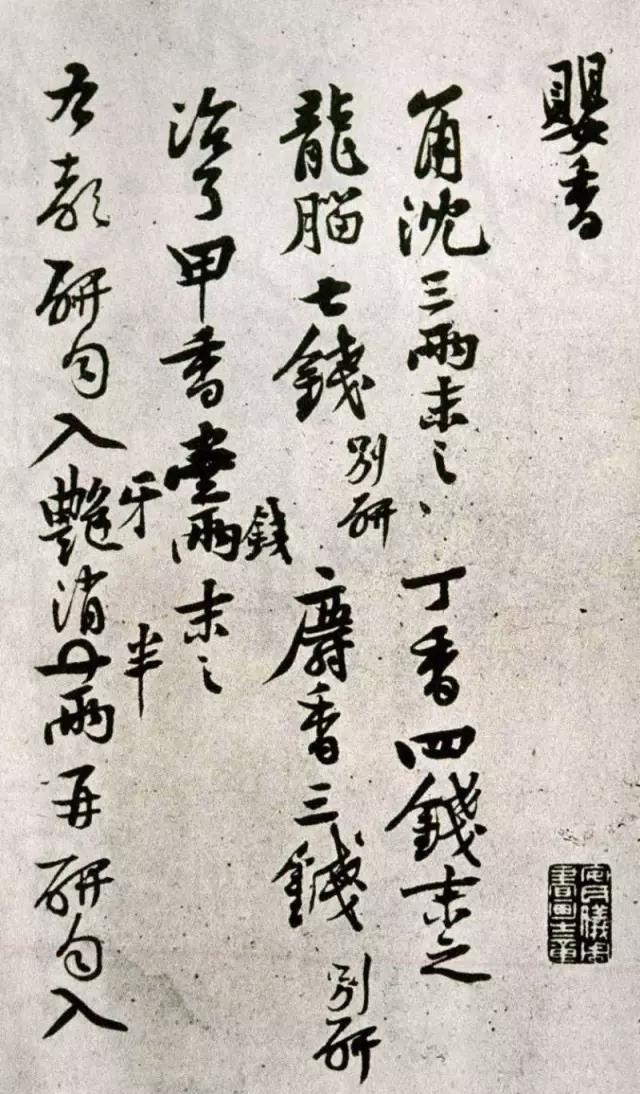 嬰香
角沈三兩末之 丁香四錢末之
龍腦七錢別研 麝香三錢別研
錢
治了甲香壹兩末之
牙 半
右都研勻入艷消兩再研勻入
安氏儀周書畫之章